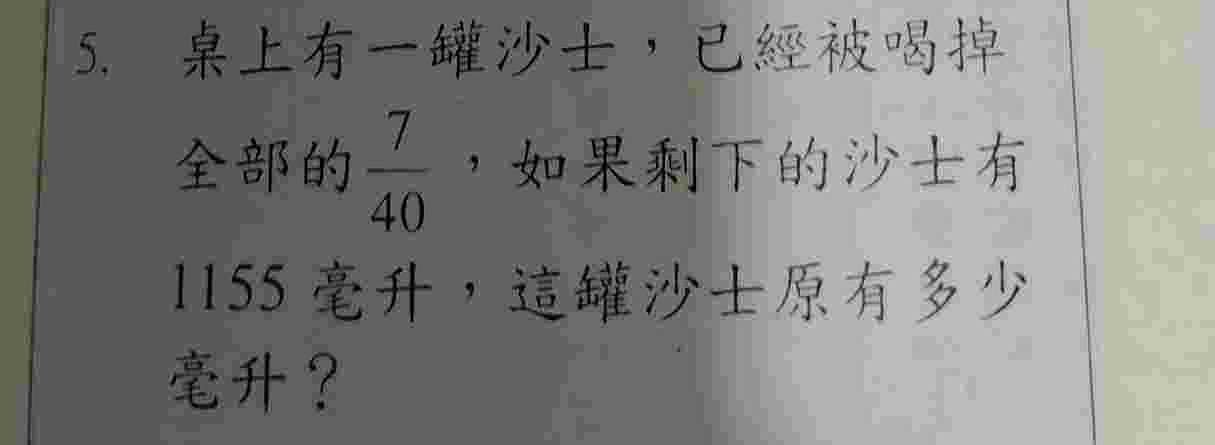 5. 桌上有一罐沙士，已經被喝掉
全部的 7/40 ，如果剩下的沙士有
1155 毫升，這罐沙士原有多少
毫升？